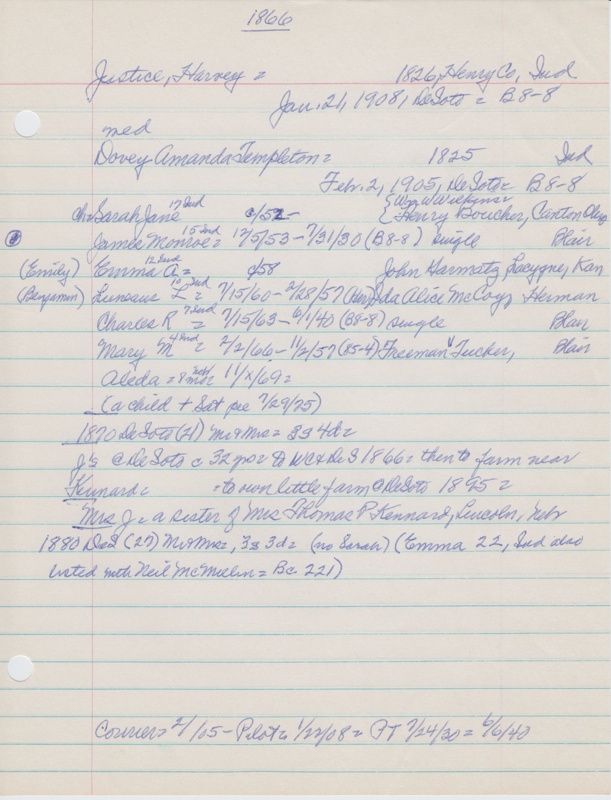 1866
Justice, Harvey = 1826, Henry Co, Ind
Jan. 21, 1908, DeSoto = B8-8
med
Dovey Amanda Templeton = 1825 Ind
Feb. 2, 1905, DeSoto = B8-8
ch = Sarah Jane 17 Ind c/52 - { Wm W Wilkinson
{ Henry Boucher, Canton Okla
James Monroe = 15 Ind 12/5/53 - 7/31/30 (B8-8) single Blair
(Emily) Emma A = 12 Ind c/58 John Harmatz Lacygne, Kan
(Benjamin) L = 10 Ind 7/15/60 - 2/28/57 Ida Alice McCoy, Herman
Charles R = 7 Ind 7/15/63 - 6/1/40 (B8-8) single Blair
Mary M = 4 Ind 2/2/66 - 11/2/57 (85-4) Freeman Tucker, Blair
Aleda = 8 mo = 11/x/69 =
(a child + Sat 7/29/75)
1870 DeSoto (21) Mr & Mrs = 3s 4d =
J's @ DeSoto c 32 yrs = to WC & DeS 1866 = then to farm near
Kennard = = to own little farm @ DeSoto 1895 =
Mrs J = a sister of Mrs Thomas P Kennard, Lincoln, Nebr
1880 DeS (27) Mr & Mrs =, 3s 3d = (no Sarah) (Emma 22, Ind also
listed with Neil McMillen = Bc 221)
Courier = 2/ /05 - Pilot = 1/22/08 = PT 7/24/30 = 6/6/40